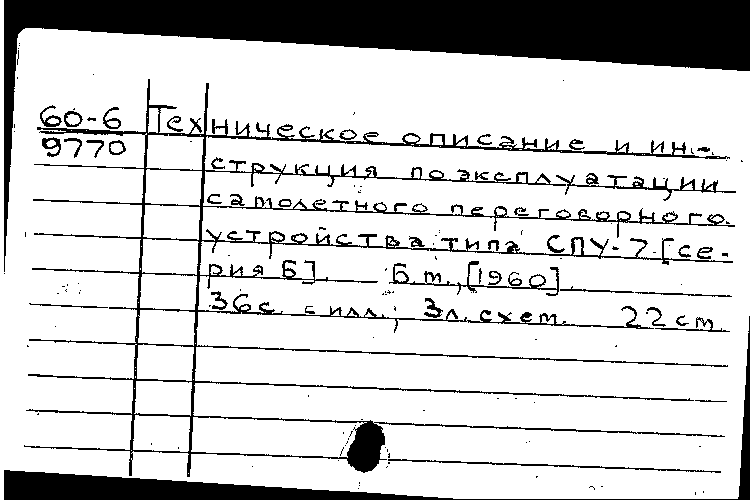 60-6 Техническое описание и ин-
9770 струкция по эксплуатации
самолетного переговорного
устройства типа СПУ-7 [се-
рия Б]. Б.м., [1960]
36 с. с илл.; 3 л. схем. 22 см